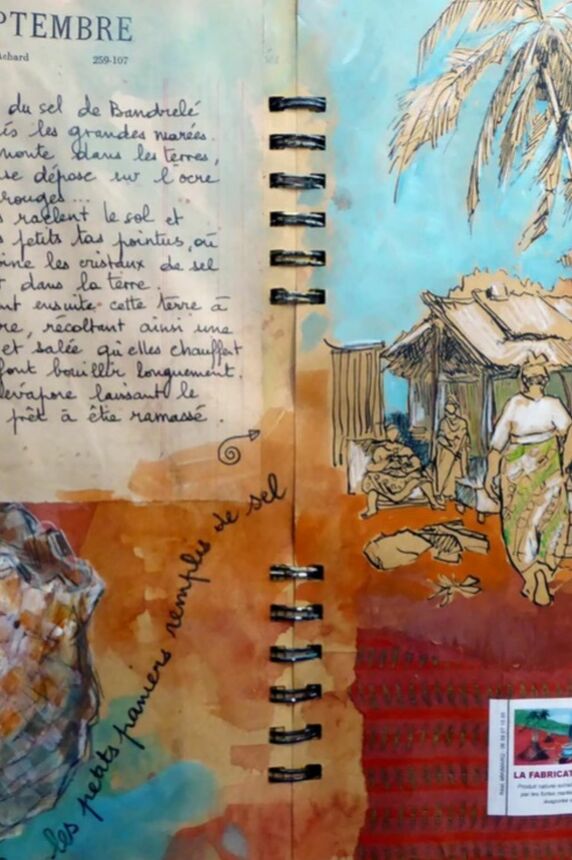 PTEMBRE
chard 259-107
du sel de Bandrelé
és les grandes marées.
monte dans les terres,
se dépose sur l'ocre
rouges...
raclent le sol et
petits tas pointus, où
les cristaux de sel
dans la terre.
nt ensuite cette terre à
re, récoltant ainsi une
et salée qu'elles chauffent
font bouillir longuement.
évapore laissant le
prêt à être ramassé.
les petits paniers remplis de sel
LA FABRICAT
Produit nature
par les fortes marées